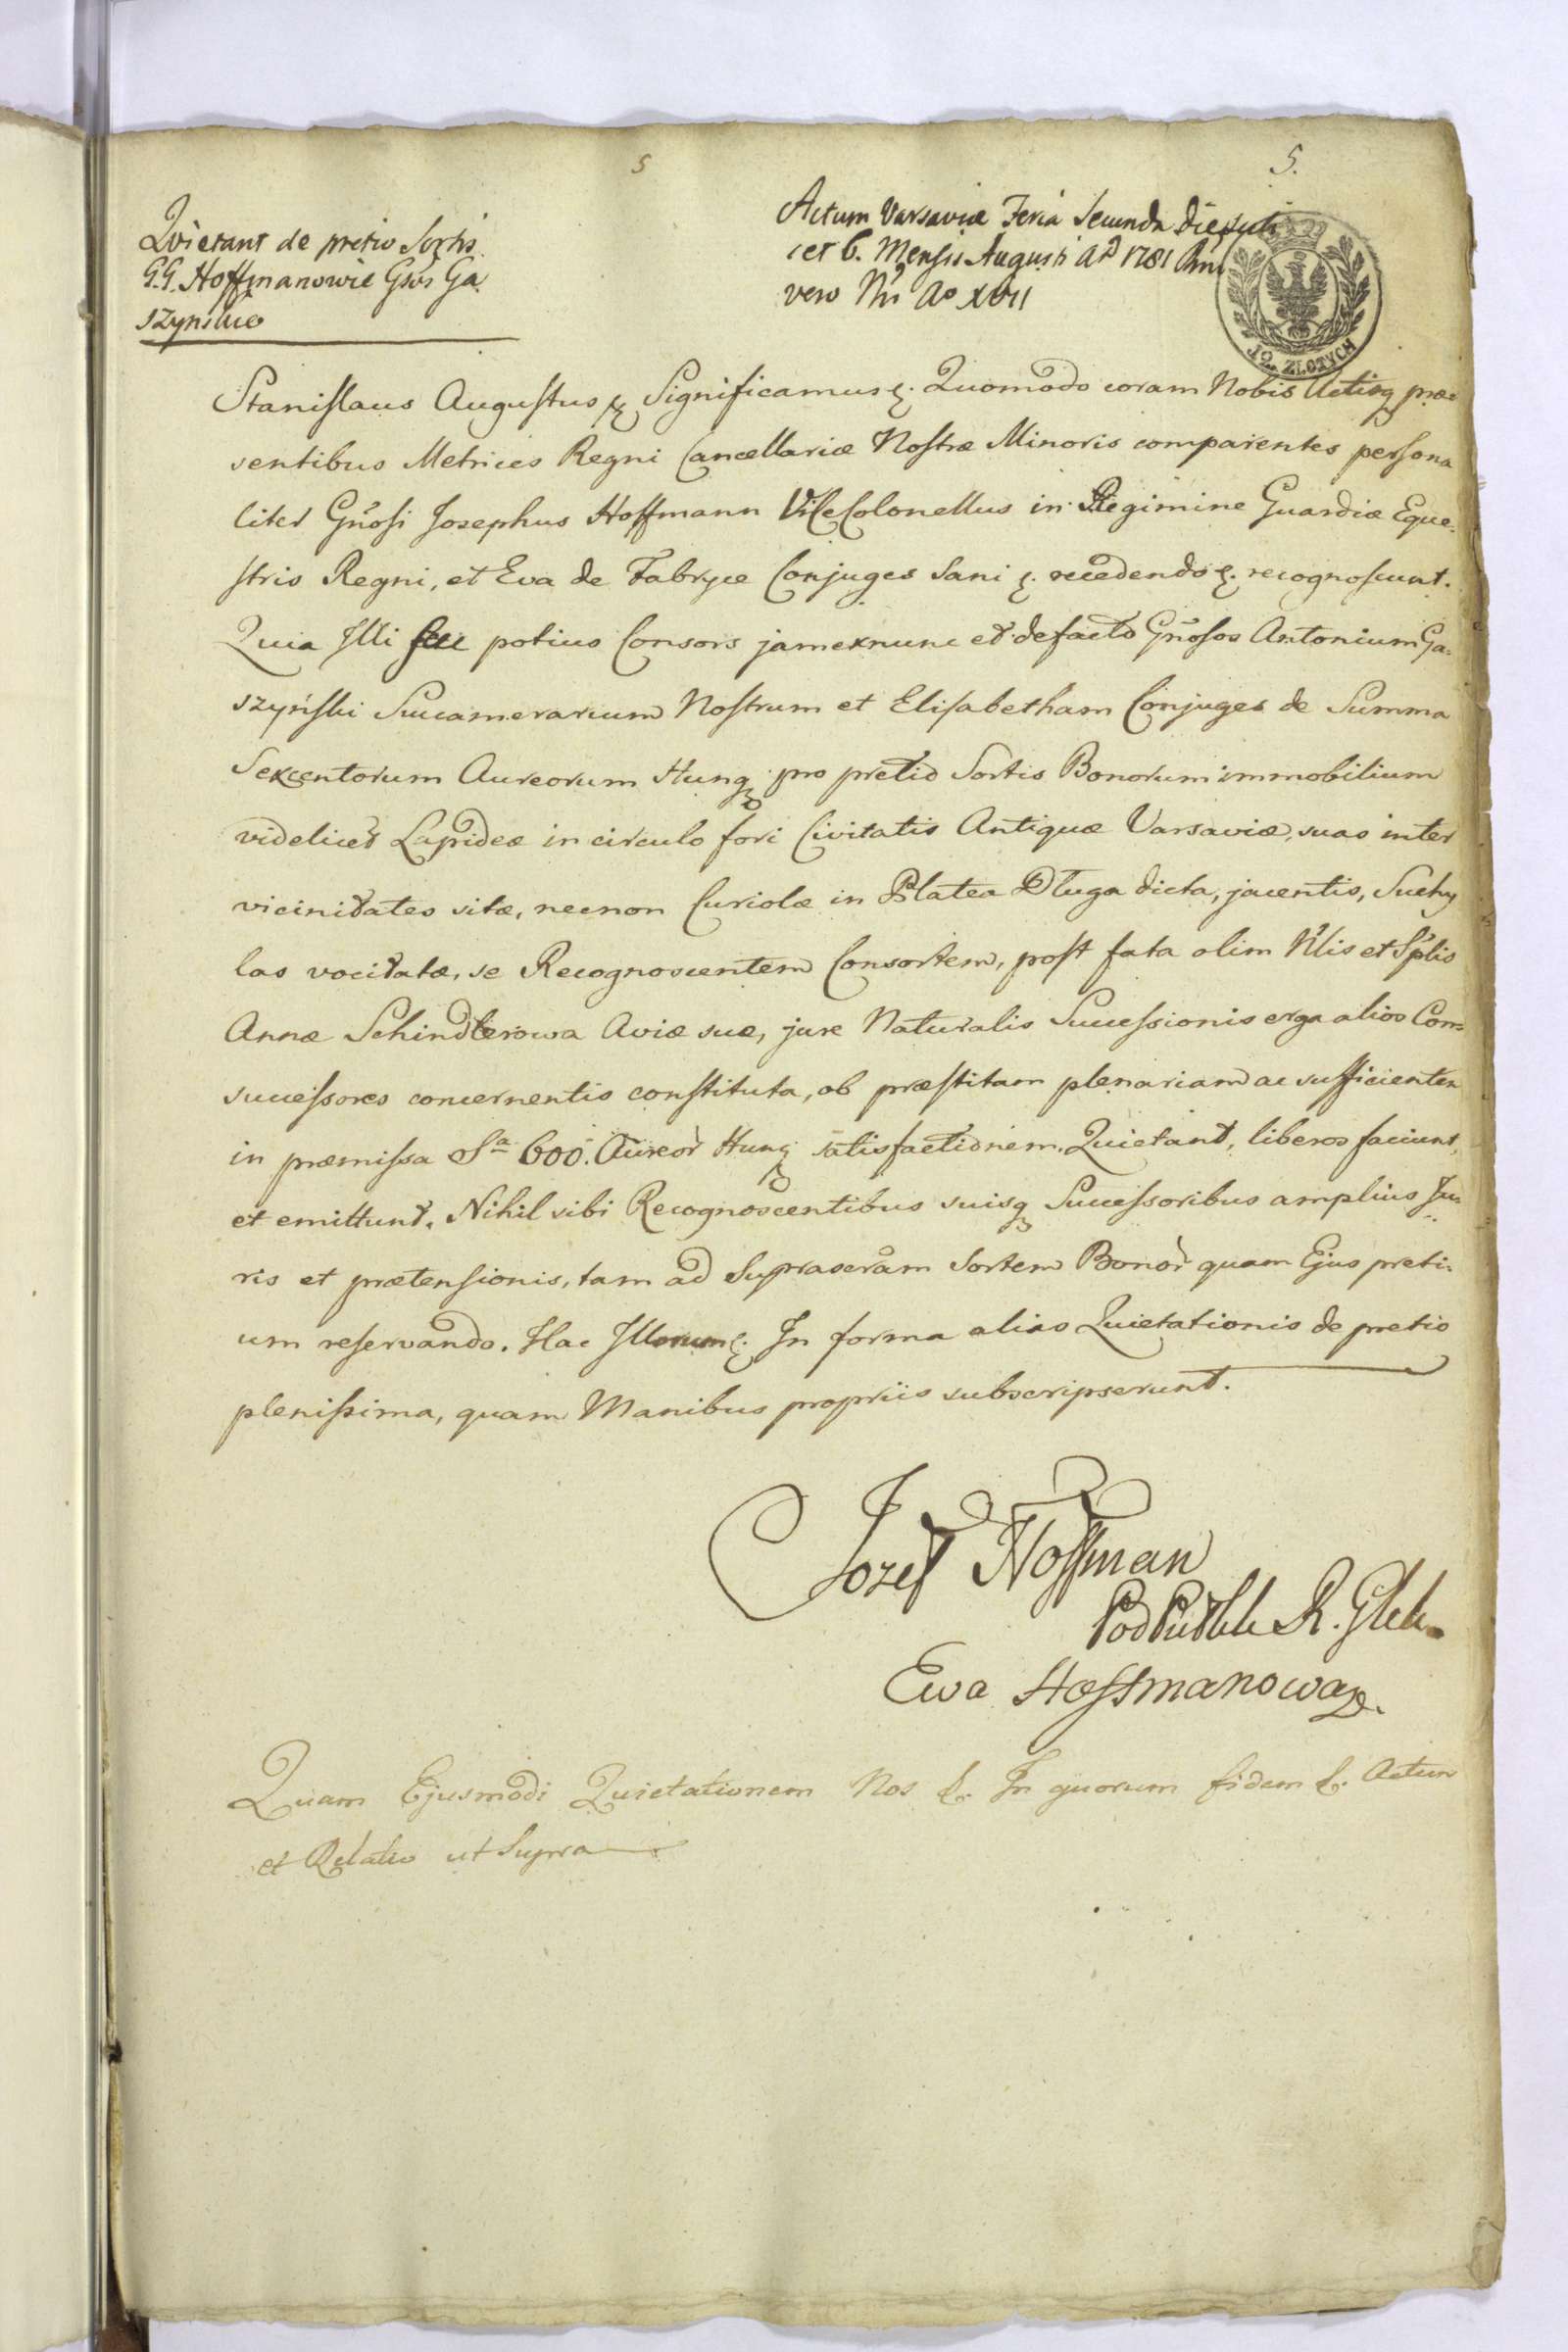 5
5.
Quietant de pretio Sortis
G.G. Hoffmanowie Gsos Ga
szynskie
Actum Varsaviæ Feria Secunda die
6. Mensis Augusti Aō 1781
vero Nri Aō XVII
12. ZŁOTYCH
Stanislaus Augustus &. Significamus &. Quomodo coram Nobis Actisq præ-
sentibus Metrices Regni Cancellariæ Nostræ Minoris comparentes persona
liter Gnosi Josephus Hoffmann ViceColonellus in Regimine Guardiæ Eque-
stris Regni, et Eva de Fabryce Conjuges Sani &. recedendo &. recognoscunt.
Quia Illi seu potius Consors jamexnunc et defacto Gnosos Antonium Ga-
szyński Succamerarium Nostrum et Elisabetham Conjuges de Summa
Sexcentorum Aureorum Hung pro pretio Sortis Bonorum immobilium
videlicet Lapideæ in circulo fori Civitatis Antiquæ Varsaviæ, suas inter
vicinitates sitæ, necnon Curiolæ in Platea Długa dicta, jacentis, Suchy
las vocitatæ, se Recognoscentem Consortem, post fata olim Nlis et Splis
Annæ Schindlerowa Aviæ suæ, jure Naturalis Successionis erga alios Con-
successores concernentis constituta, ob præstitam plenariam ac sufficientem
in præmissa Sa 600. Aureor Hung satisfactionem. Quietant, liberos faciunt,
et emittunt. Nihil sibi Recognoscentibus suisq Successoribus amplius Ju-
ris et prætensionis, tam ad Suprascram Sortem Bonor quam Ejus preti-
um reservando. Hac Illorum &. In forma alias Quietationis de pretio
plenissima, quam Manibus propriis subscripserunt.
Jozef Hoffman
R.
Ewa Hoffmanowa
Quam Ejusmodi Quietationem Nos &. In quorum fidem &. Actum
et Relatio ut Supra